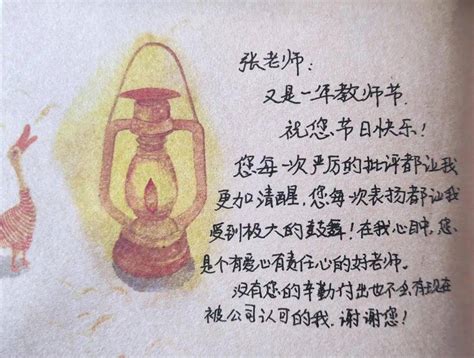 张老师:
又是一年教师节.
祝您节日快乐!
您每一次严厉的批评都让我
更加清醒,您每次表扬都让我
受到极大的鼓舞!在我心目中,您
是个有爱心有责任心的好老师。
没有您的辛勤付出也不会有现在
被公司认可的我,谢谢您!